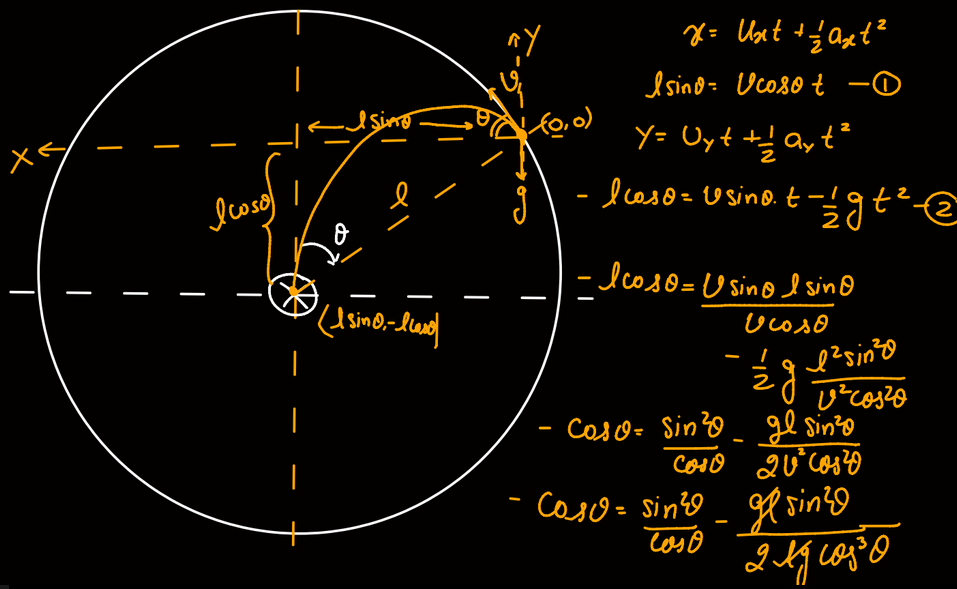 Y
X
υ
θ
(0,0)
l sinθ
g
l cosθ
l
θ
(l sinθ, -l cosθ)
x = Uxt + 1/2 axt²
l sinθ = υ cosθ t — ①
Y = Uyt + 1/2 ayt²
- l cosθ = υ sinθ. t - 1/2 g t² - ②
- l cosθ = υ sinθ l sinθ / υ cosθ
- 1/2 g l² sin²θ / υ² cos²θ
- cosθ = sin²θ / cosθ - gl sin²θ / 2υ² cos²θ
- cosθ = sin²θ / cosθ - gl sin²θ / 2 lg cos³θ